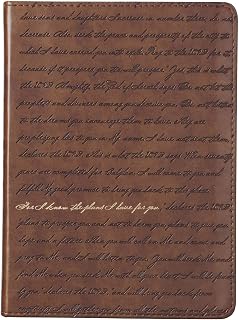 have sons and daughters. Increase in number there; do not
decrease. Also seek the peace and prosperity of the city to
which I have carried you into exile. Pray to the LORD for it,
because if it prospers, you too will prosper." Yes, this is what
the LORD Almighty, the God of Israel says: "Do not let the
prophets and diviners among you deceive you. Do not listen
to the dreams you encourage them to have. They are
prophesying lies to you in My name. I have not sent them,"
declares the LORD. This is what the LORD says: "When seventy
years are completed for Babylon, I will come to you and
fulfill My good promise to bring you back to this place.
For I know the plans I have for you," declares the LORD,
"plans to prosper you and not to harm you, plans to give you
hope and a future. Then you will call on Me and come and
pray to Me, and I will listen to you. You will seek Me and
find Me when you seek Me with all your heart. I will be found by
you," declares the LORD, "and will bring you back from